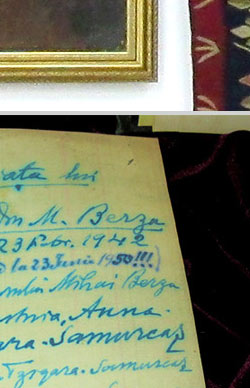 ața lui
M. Berza
23 Febr. 1942
la 23 Iunie 1950!!!)
Mihai Berza
Anna
ara-Samurcaș
Tzigara-Samurcaș